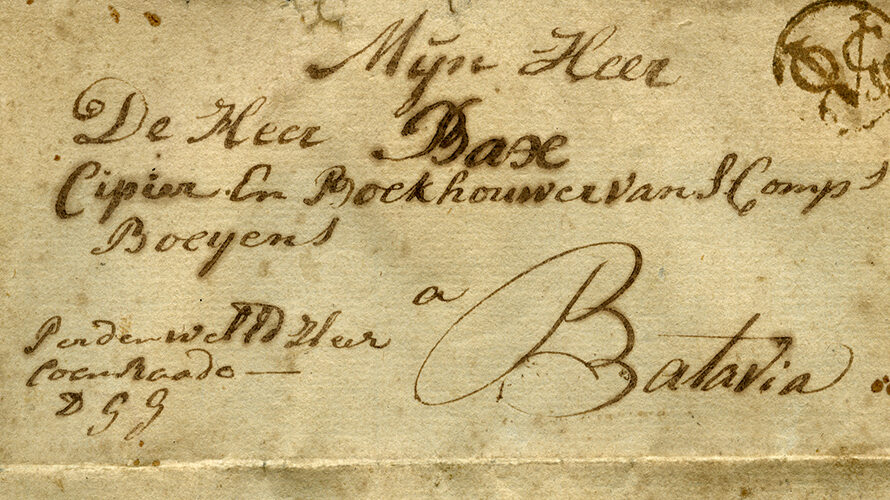 Mÿn Heer
De Heer Baxe
Cipier En Boekhouwer van S Comps
Boeyens
a
Batavia
Per den Heer
Coenraade
D G G